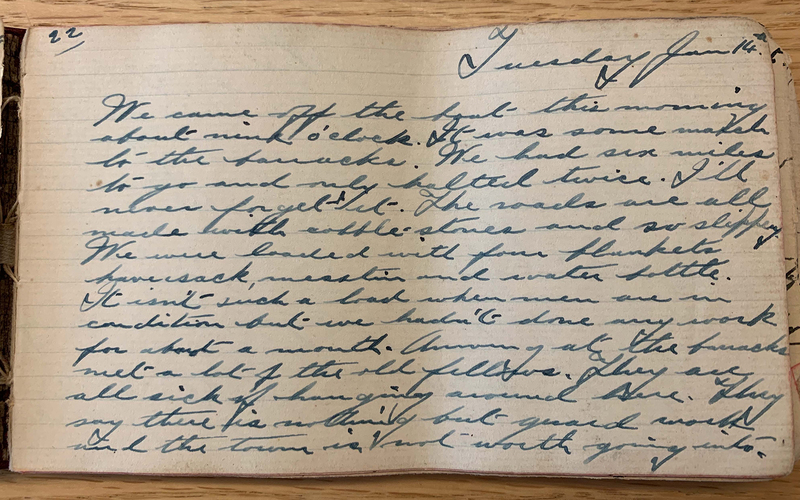 22
Tuesday Jan 14th
We came off the boat this morning
about nine o'clock. It was some march
to the barracks. We had six miles
to go and only halted twice. I'll
never forget it. The roads are all
made with cobble-stones and so slippey
We were loaded with four blankets
haversack, messtin and water bottle.
It isn't such a load when men are in
condition but we hadn't done any work
for about a month. Arriving at the barracks
met a lot of the old fellows. They are
all sick of hanging around here. They
say there is nothing but guard work
and the town is not worth going into.